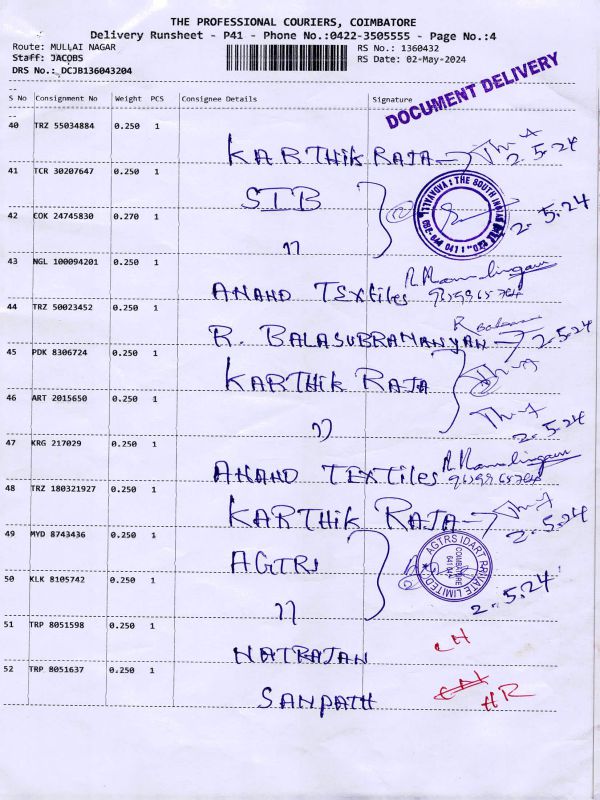 THE PROFESSIONAL COURIERS, COIMBATORE
Delivery Runsheet - P41 - Phone No.:0422-3505555 - Page No.:4
Route: MULLAI NAGAR
Staff: JACOBS
DRS No.: DCJB136043204
RS No.: 1360432
RS Date: 02-May-2024
DOCUMENT DELIVERY
S No Consignment No Weight PCS Consignee Details Signature
40 TRZ 55034884 0.250 1
KARTHIK RAJA 2.5.24
41 TCR 30207647 0.250 1
SIB
42 COK 24745830 0.270 1
11 2.5.24
43 NGL 100094201 0.250 1
ANAND TEXTILES
44 TRZ 50023452 0.250 1
R. BALASUBRAMANYAN 2.5.24
45 PDK 8306724 0.250 1
KARTHIK RAJA
46 ART 2015650 0.250 1
11 2.5.24
47 KRG 217029 0.250 1
ANAND TEXTILES
48 TRZ 180321927 0.250 1
KARTHIK RAJA 2.5.24
49 MYD 8743436 0.250 1
AGTRI
AGTRS IDART PRIVATE LIMITED
COIMBATORE
641 041
50 KLK 8105742 0.250 1
11 2.5.24
51 TRP 8051598 0.250 1
NATRAJAN
52 TRP 8051637 0.250 1
SANPATH HR